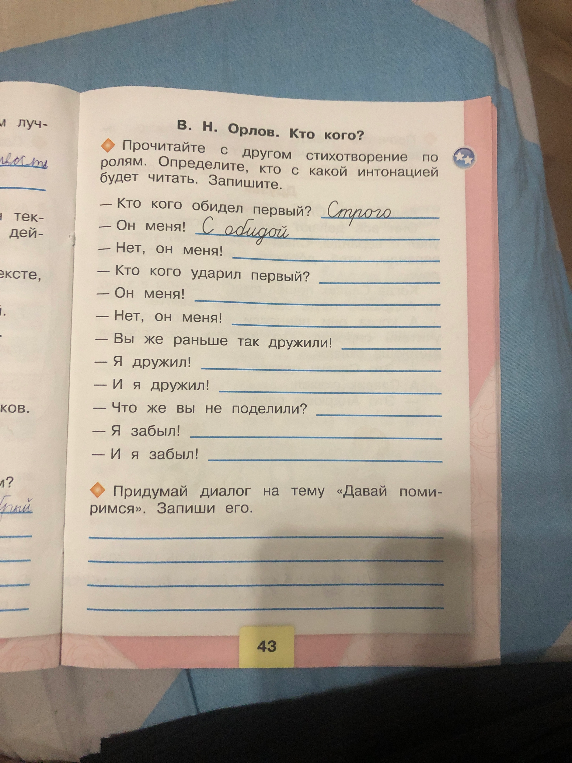 м луч-
н тек-
дей-
ексте,
й.
ков.
м?
В. Н. Орлов. Кто кого?
Прочитайте с другом стихотворение по
ролям. Определите, кто с какой интонацией
будет читать. Запишите.
— Кто кого обидел первый? Строго
— Он меня! С обидой
— Нет, он меня!
— Кто кого ударил первый?
— Он меня!
— Нет, он меня!
— Вы же раньше так дружили!
— Я дружил!
— И я дружил!
— Что же вы не поделили?
— Я забыл!
— И я забыл!
Придумай диалог на тему «Давай поми-
римся». Запиши его.
43